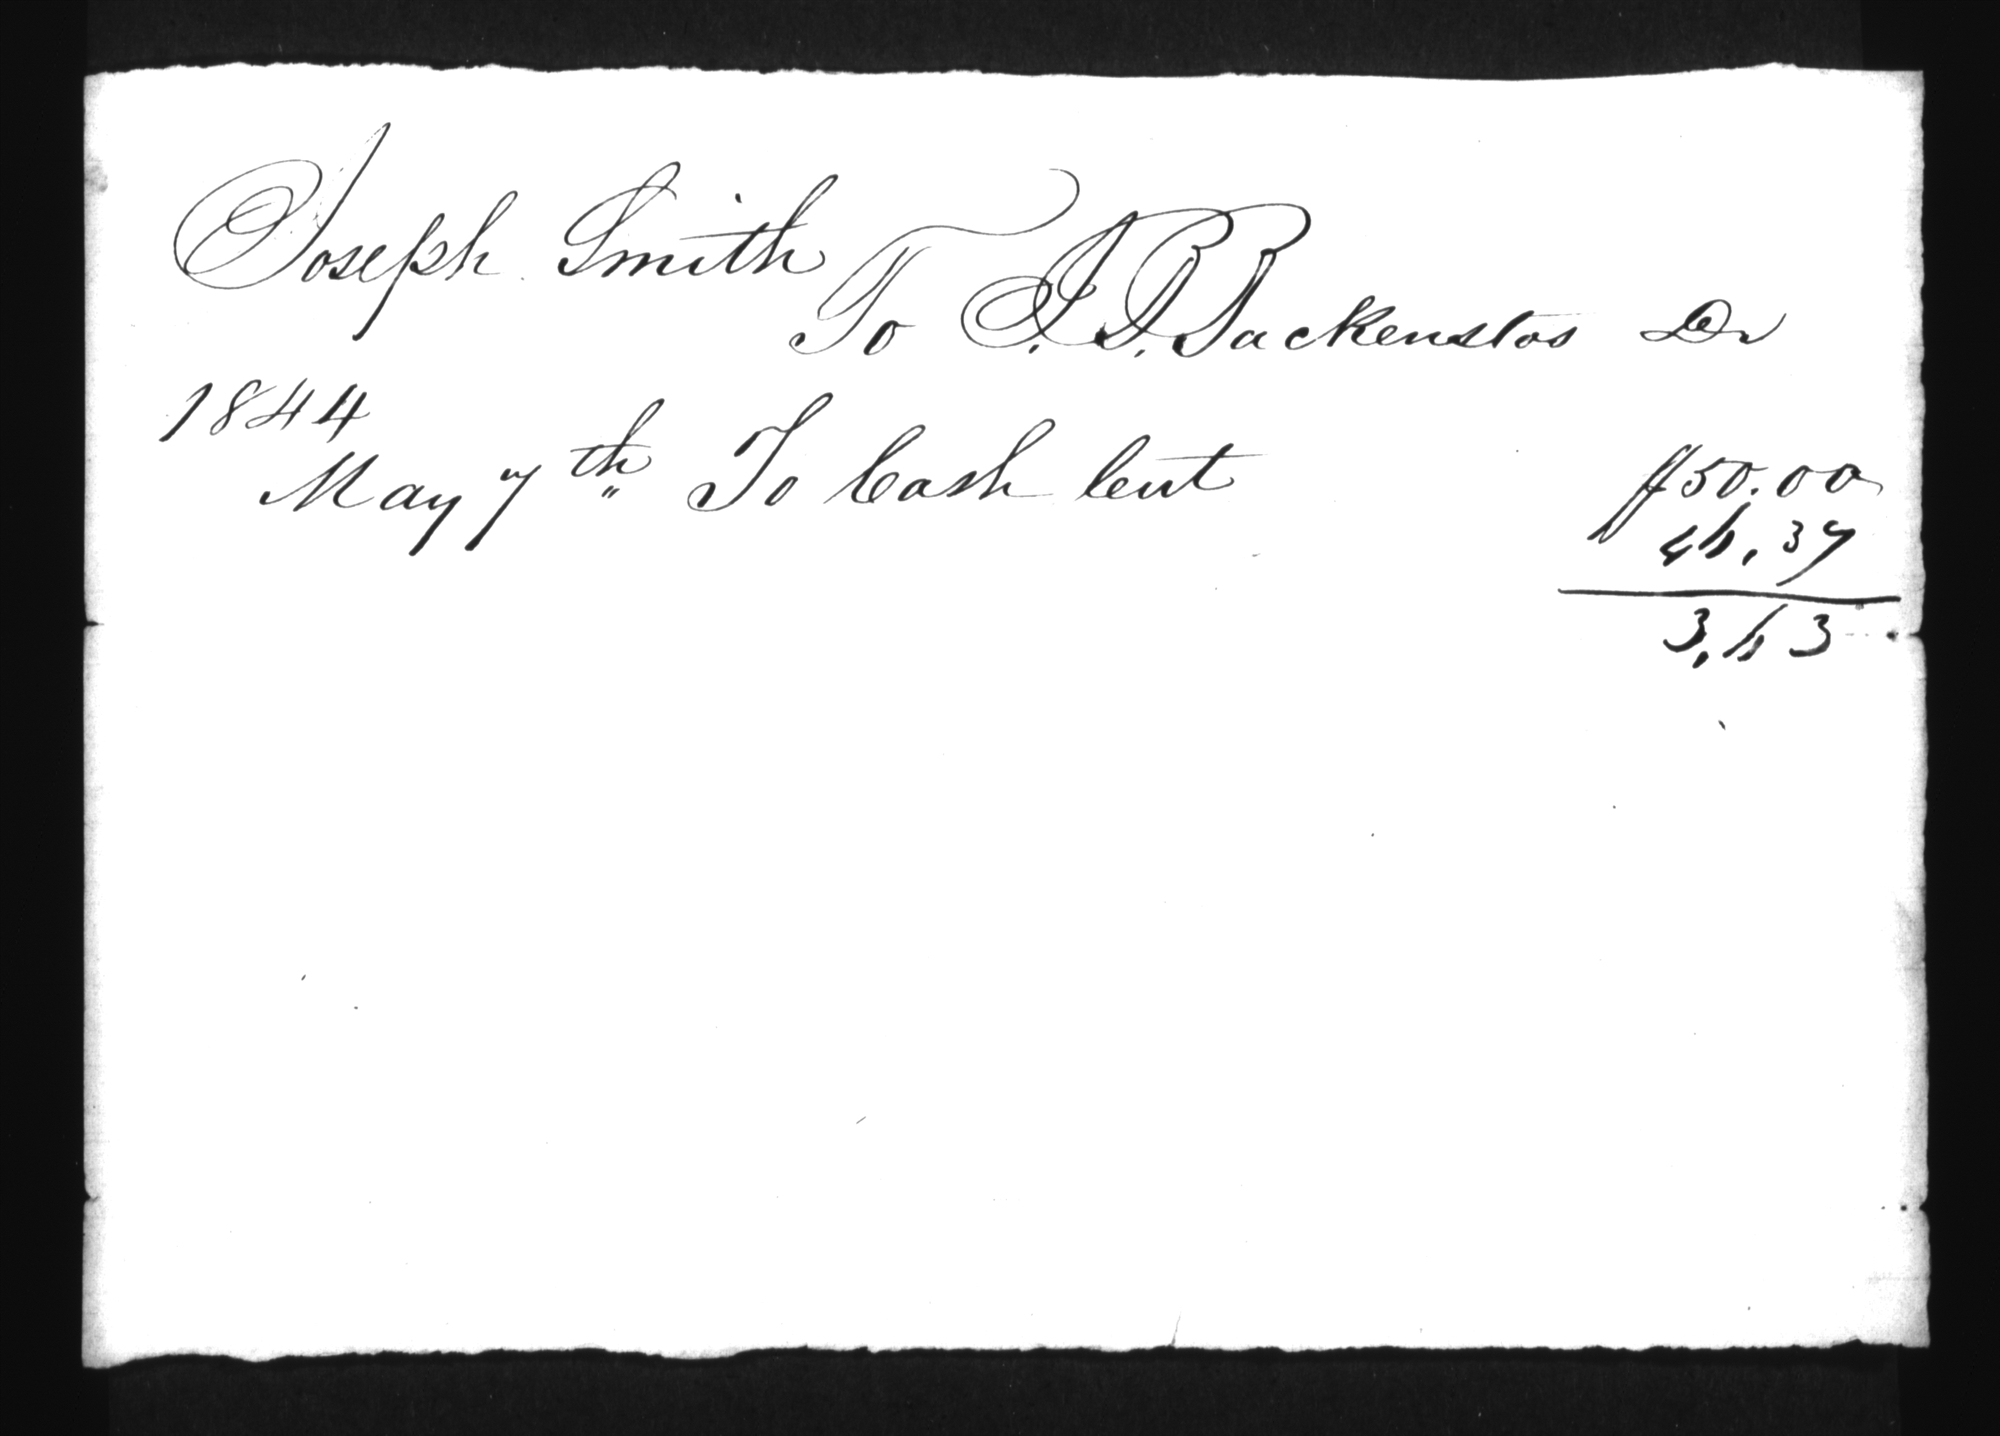 Joseph Smith
To J. B. Backenstos Dr
1844
May 7th To Cash lent $50.00
46.37
3.63